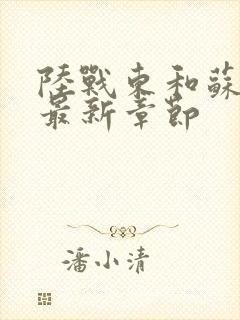 陸戰東和蘇
最新章節
潘小清